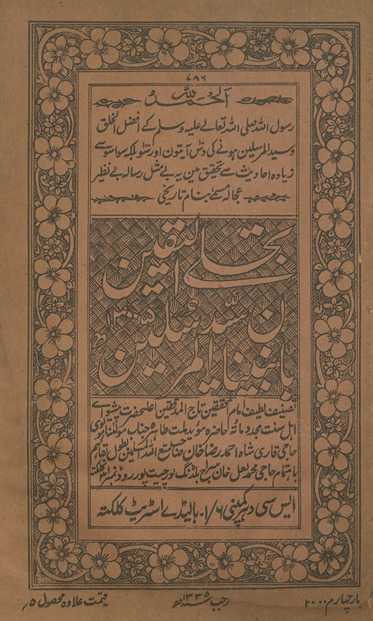 ۷۸۶
الحمدللہ
رسول اللہ صلی اللہ تعالےٰ علیہ وسلم کے افضل الخلق
وسید المرسلین ہونے کی دس آیتوں اور تنو بلکہ سوا سو سے
زیادہ احادیث سے تحقیق میں یہ بے مثل رسالہ بے نظیر
عجالہ بنام تاریخی
تجلی الیقین
بان نبینا سید المرسلین
۱۳۰۵
تصنیف لطیف امام المحققین تاج المدققین اعلیحضرت پیشوائے
اہل سنت مجدد مائۃ حاضرہ مؤید ملت طاہرہ جناب مولٰنا مولوی
حاجی قاری شاہ احمد رضا خان صاحب
باہتمام حاجی محمد لعل خان بلڈنگ لور چیت پور روڈ کلکتہ
ایس سی دہر کمپنی ۱/۶ ہالیڈے اسٹریٹ کلکتہ
بار چہارم ۲۰۰۰ رجب ۱۳۳۵ قیمت علاوہ محصول ۵